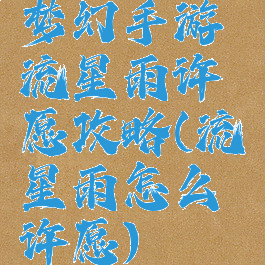 梦幻手游
流星雨许
愿攻略(流
星雨怎么
许愿)